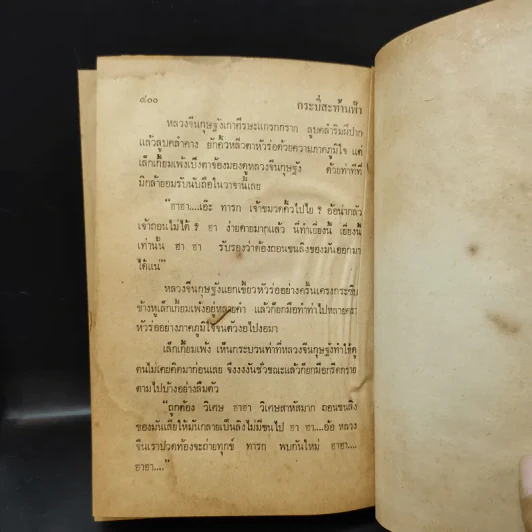 ๙๐๐ กระบี่สะท้านฟ้า
หลวงจีนกุษฐังเกาศีรษะแกรกกราก ลูบคลำริมฝีปาก
แล้วลูบคลำคาง ยักคิ้วหลิ่วตาหัวร่อด้วยความภาคภูมิใจ แต่
เล็กเกี้ยมเพ้งเบิ่งตาจ้องมองดูหลวงจีนกุษฐัง ด้วยท่าทีที่
มิกล้ายอมรับนับถือในวาจานี้เลย
“ฮาฮา....เอ๊ะ ทารก เจ้าขมวดคิ้วไปไย ? อ้อน่ากลัว
เจ้าถอนไม่ได้ ? ฮา ง่ายดายมากแล้ว นี่ทำเยี่ยงนี้ เยี่ยงนี้
เท่านั้น ฮา ฮา รับรองว่าต้องถอนขนลิงของมันออกมา
ได้แน่”
หลวงจีนกุษฐังแยกเขี้ยวหัวร่ออย่างครื้นเครงกระซิบ
ข้างหูเล็กเกี้ยมเพ้งอยู่หลายคำ แล้วก็ยกมือทำท่าไปหลายครา
หัวร่ออย่างภาคภูมิใจจนตัวงอไปงอมา
เล็กเกี้ยมเพ้ง เห็นกระบวนท่าที่หลวงจีนกุษฐังทำให้ดู
ตนไม่เคยคิดมาก่อนเลย จึงงงงันชั่วขณะแล้วก็ยกมือกรีดกราย
ตามไปบ้างอย่างลืมตัว
“ถูกต้อง วิเศษ ฮาฮา วิเศษสาหัสมาก ถอนขนลิง
ของมันเสียให้มันกลายเป็นลิงไม่มีขนไป ฮา ฮา....อ้อ หลวง
จีนเราปวดท้องจะถ่ายทุกข์ ทารก พบกันใหม่ ฮาฮา....
ฮาฮา....”